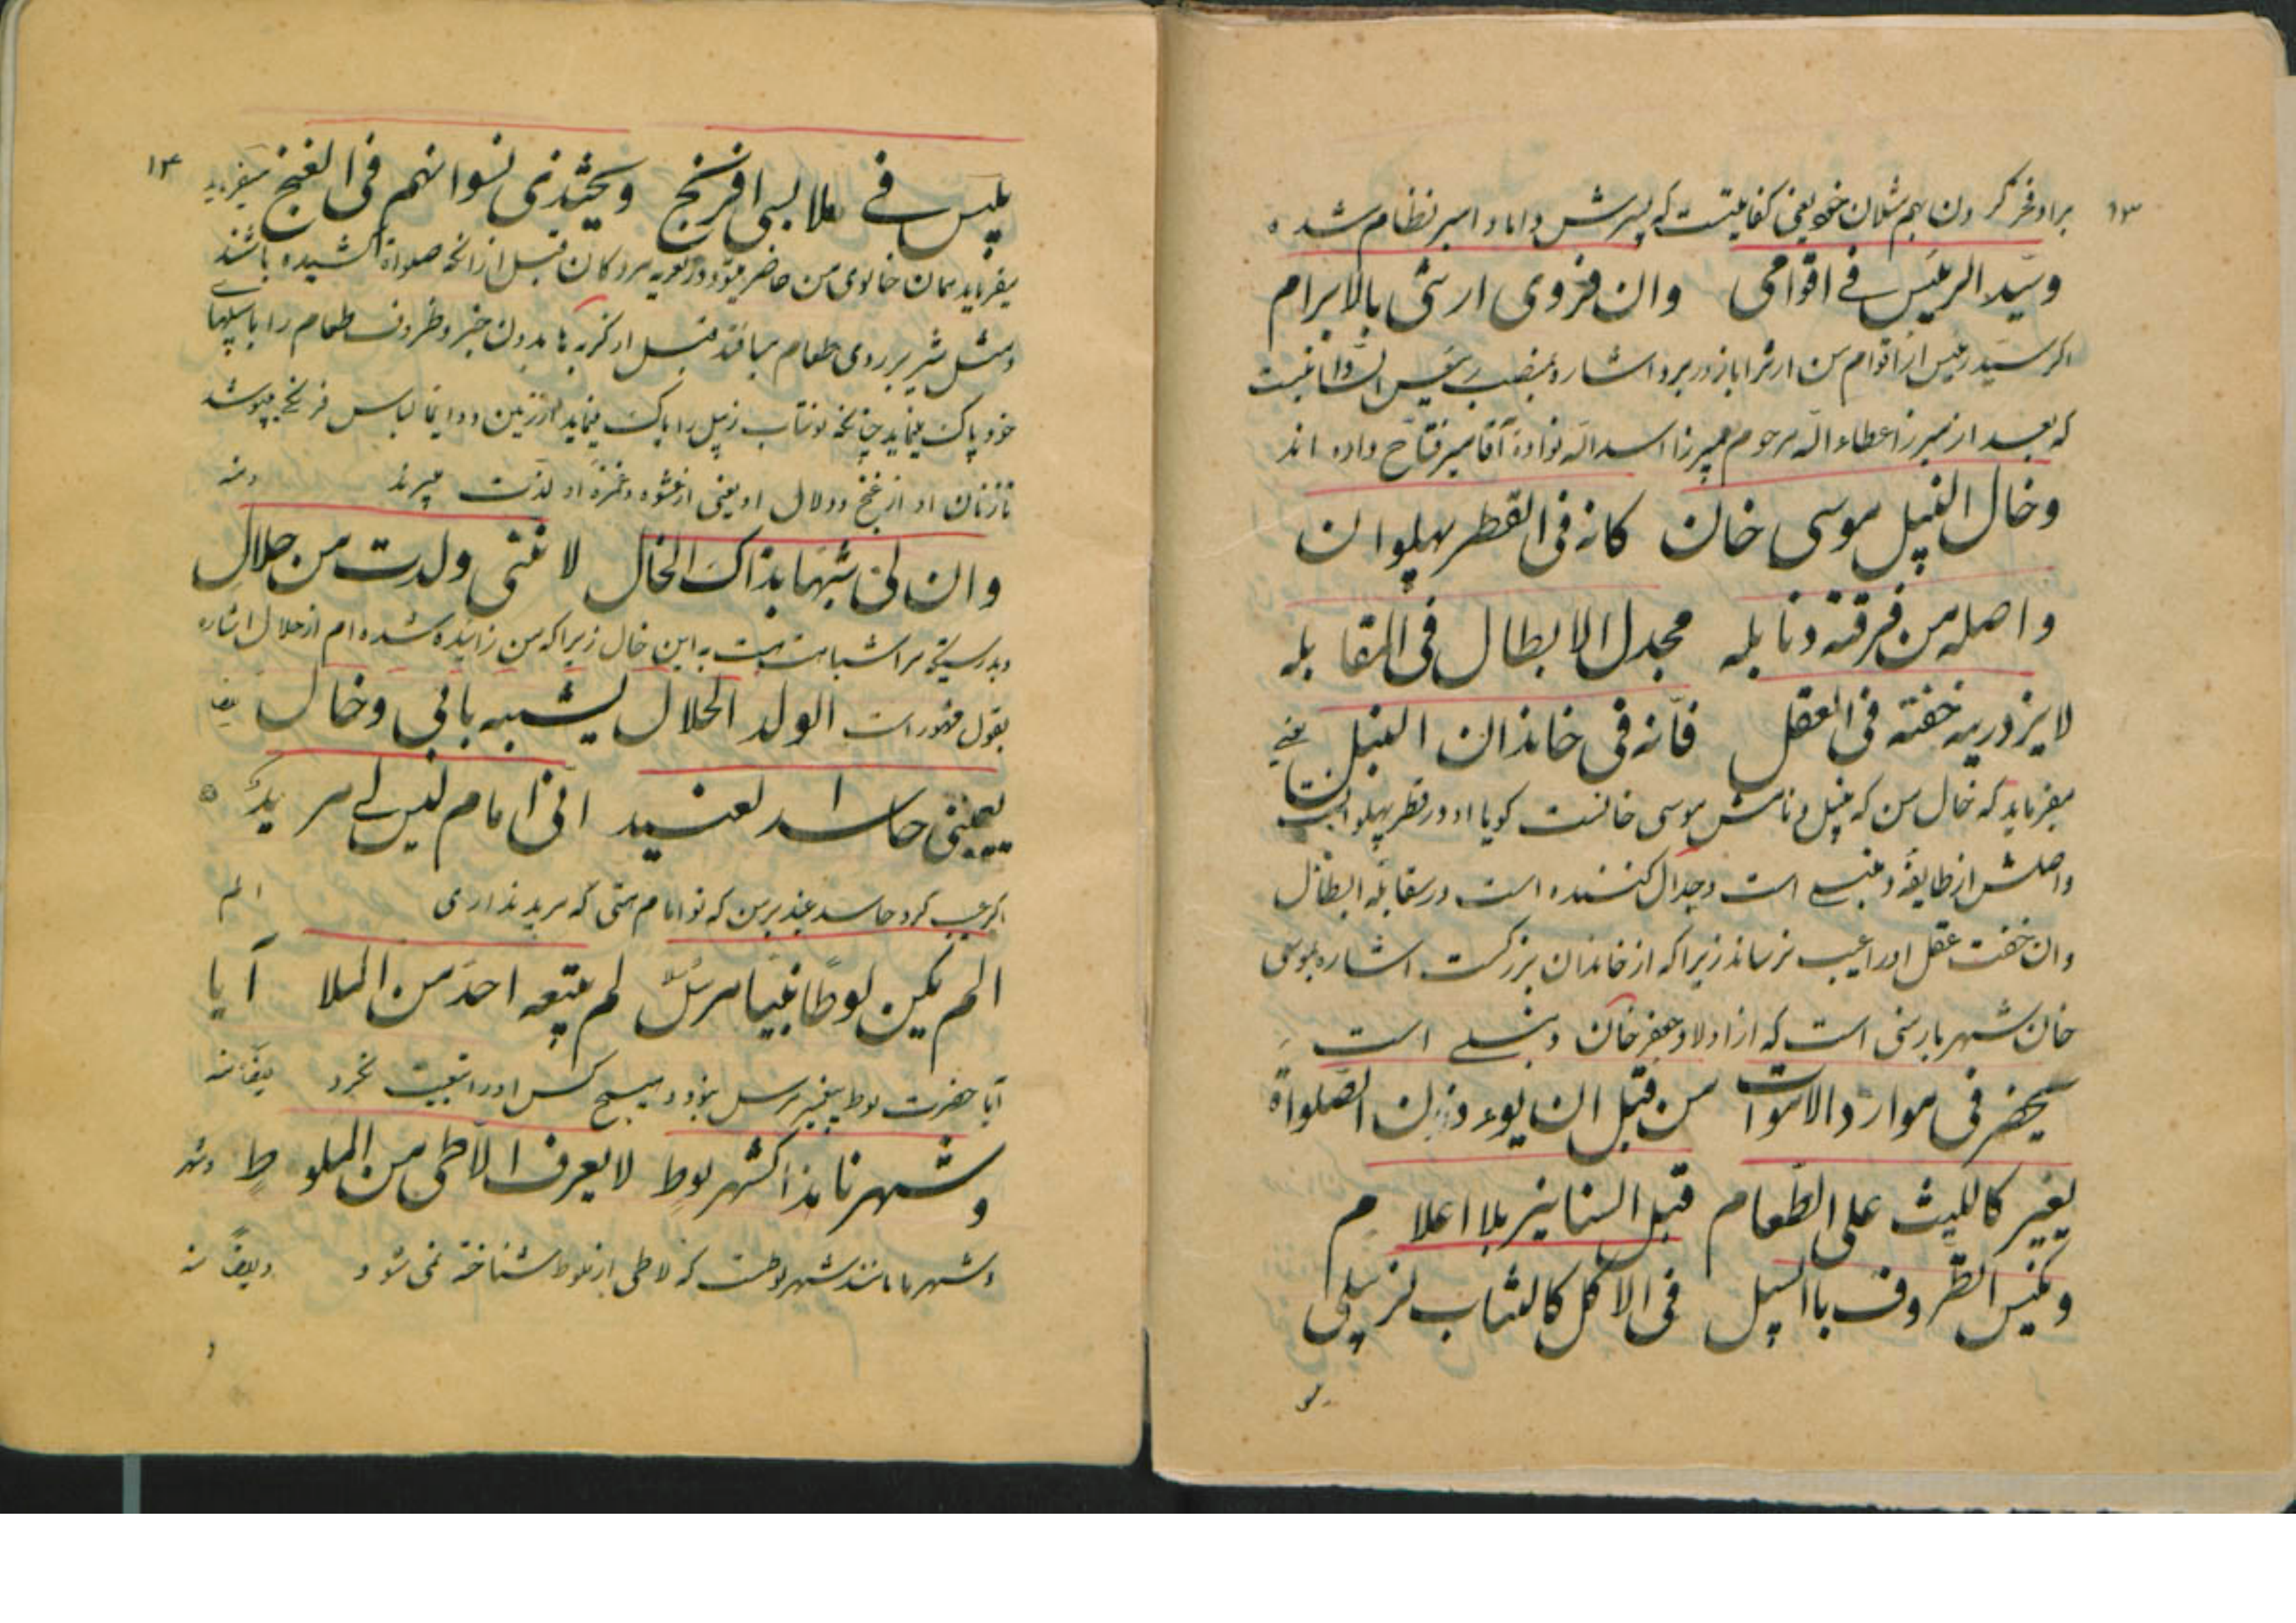 ۱۳
براو فخر کردن بهم شلمان خود یعنی کفایتست که پسرش داماد امیر نظام شده
وسید الرئیس فی اقوامی وان فزوی ارثی بالابرام
اکر سید رئیس از اقوام من ارث را بازور برد اشاره بمنصب رئیس است
که بعد از میرزا عطاء اله مرحوم میرزا اسد اله نواده آقا میر فتاح داده اند
وخال النپل موسی خان کانه فی القطر پهلوان
واصله من فرقته دنابله مجدل الابطال فی المقابله
لا یزدریه خفته فی العقل فانه فی خاندان النبل یعنی
میفرماید که خال من که نپل و نامش موسی خانست کویا او در قطر پهلوانست
واصلش از طایفهٔ دنبلی است وجدال کننده است در مقابله ابطال
وان خفت عقل اورا عیب نرساند زیرا که از خاندان بزرکست اشاره بموسی
خان شهربارسی است که از اولاد جعفر خان دنبلی است
یحضر فی موارد الاموات من قبل ان یوءذن الصلواة
یغیر کاللیث علی الطعام قبل السنانیر بلا اعلام
ویکنس الظروف باالسپل فی الاکل کالشاب لزپلی
یلبس
۱۴
یلبس فی ملابس افرنج ویحتذی نسوانهم فی الغنج میفرماید
میفرماید همان خالوی من حاضر میشود در تعزیه مردکان قبل از آنکه صلواة کشیده باشند
ومثل شیر بر روی طعام میافتد قبل از کربه ها بدون خبر وظروف طعام را باسپلها
خود پاک مینماید چنانکه نوشاب زپل را پاک مینماید از زمین ودوایما لباس فرنکی میپوشد
نازنان او از غنج ودلال او یعنی از عشوه وغمزه او لذت میبرند
وان لی شبها بذاک الخال لاننی ولدت من حلال
وبدرستیکه مرا شباهت هست به این خال زیرا که من زائیده شده ام از حلال اشاره
بقول مشهور است الولد الحلال یشبه بابی وخال
یعیبنی حاسد العنید انی امام لیس لی مرید
اکر عیب کرد حاسد عنید بر من که تو امام هستی که مرید نداری الم
الم یکن لوطا نبیا مرسلا لم یتبعه احد من الملا آیا
آیا حضرت لوط پیغمبر مرسل نبود و هیچ کس او را تبعیت نکرد
وشهرنا هذا کشهر لوط لا یعرف الاطی من الملوط
وشهر ما مانند شهر لوطست که لاطی از ملوط شناخته نمی شود